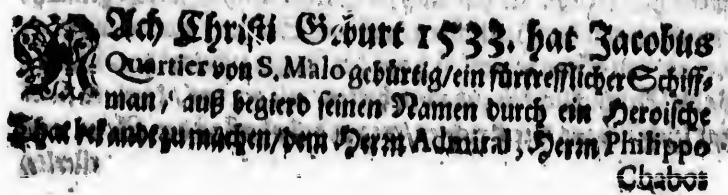 NAch Christi Geburt 1533. hat Jacobus
Quartier von S. Malo gebürtig/ein fürtrefflicher Schiff-
man/ auß begierd seinen Namen durch ein Heroische
That bekandt zu machen/dem Herrn Admiral, Herrn Philippo
Chabot